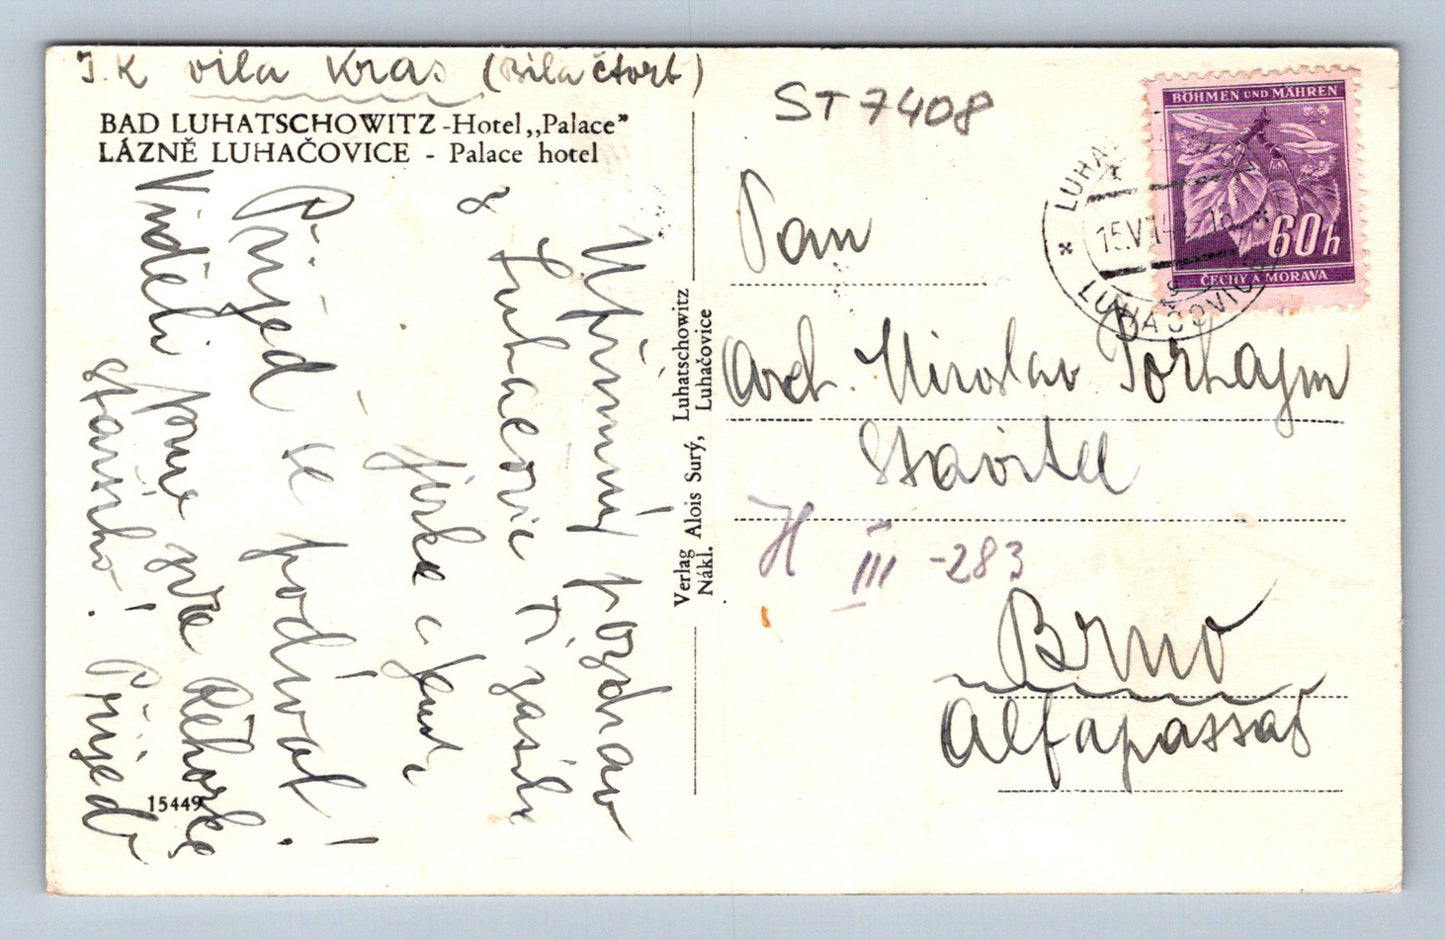 J.K vila Kras (Bílá čtvrť)
BAD LUHATSCHOWITZ - Hotel „Palace"
LÁZNĚ LUHAČOVICE - Palace hotel
Upřímný pozdrav
z Luhačovic Ti zasílá
Jirka a
Přijeď se podívat!
Viděli jsme zde Řehořka
staršího! Přijeď
15449
Verlag Alois Surý, Luhatschowitz
Nákl. Luhačovice
ST 7408
BÖHMEN UND MÄHREN
60h
ČECHY A MORAVA
LUHAČOVICE
Pan
Arch. Miroslav Porhajm
stavitel
H III -283
Brno
Alfapassáž